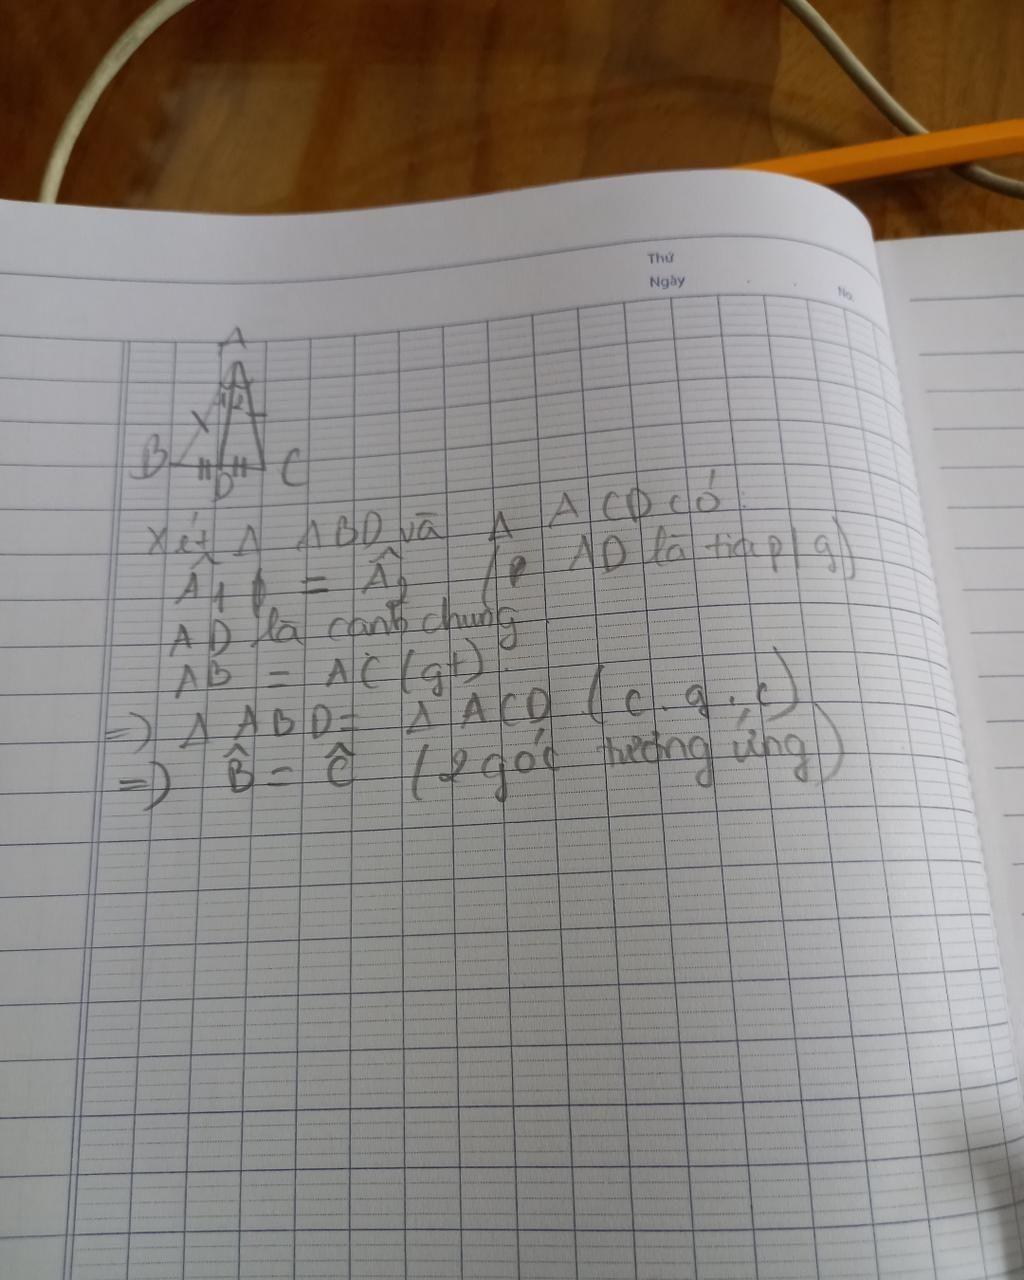 Thứ
Ngày
No.
A
1 2
B D C
Xét Δ ABD và Δ ACD có
Â1 = Â2 ( AD là tia p/g)
AD là cạnh chung
AB = AC (gt)
=) Δ ABD = Δ ACD ( c.g.c)
=) B̂ = Ĉ (2 góc tương ứng)